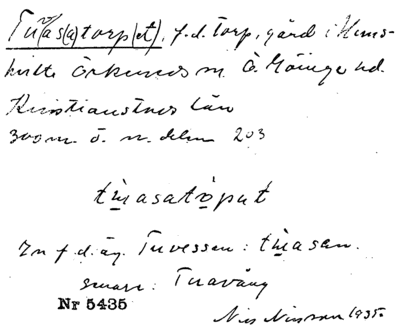 Tuas(a)torp(et), f.d. torp, gård i Huns-
hult Örkeneds sn. Ö. Göinge hd.
Kristianstads län
300 m. ö. n. delen 203
tu̲asato̲put
f.d. äg. Tuvessen: tu̲asan.
senare: Tuaväng
Nr 5435
Nils Nilsson 1935.